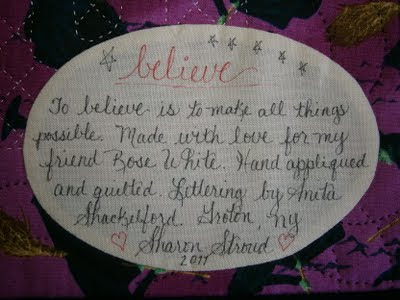 believe
To believe is to make all things
possible. Made with love for my
friend Rose White. Hand appliqued
and quilted. Lettering by Anita
Shackelford. Groton, NY
Sharon Stroud
2011